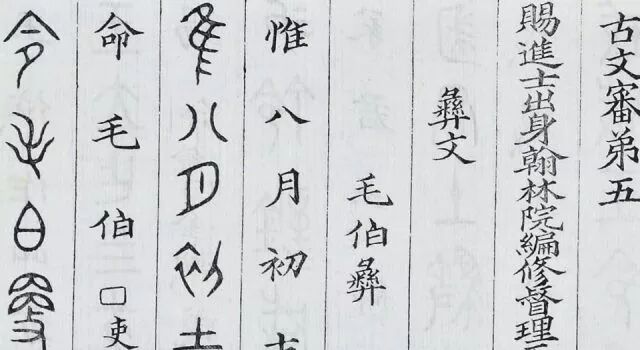 古文審弟五
賜進士出身翰林院編修督理
彝文
毛伯彝
惟八月初
隹八月初
命毛伯□吏
令毛白